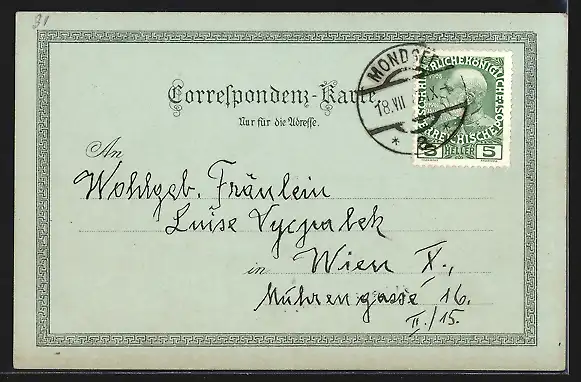 31
Correspondenz-Karte.
Nur für die Adresse.
MONDSEE
18.VII
KAISERLICHE KÖNIGLICHE ÖSTERREICHISCHE POST
5 HELLER 5
An
Wohlgeb. Fräulein
Luise Vycpalek
in Wien X.,
Muhrengasse 16.
II./15.